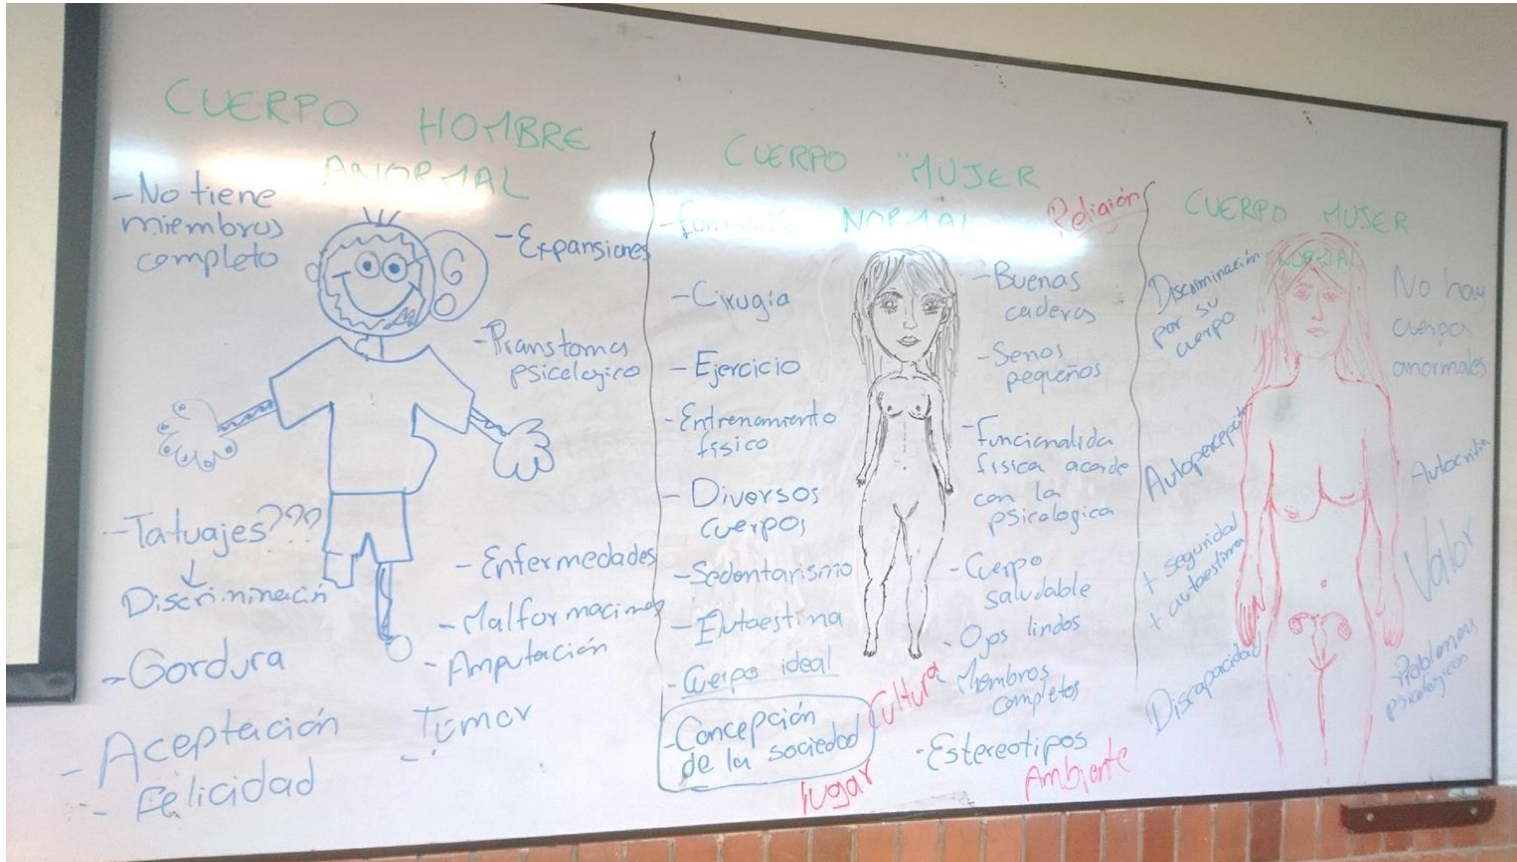 CUERPO HOMBRE
ANORMAL
-No tiene
miembros
completo
-Expansiones
-Pranstornos
psicologico
-Tatuajes???
Discriminación
-Gordura
-Aceptación
-Felicidad
-Enfermedades
-Malformaciones
-Amputación
-Tumor
CUERPO "MUJER
NORMAL
Religión
-Cirugía
-Ejercicio
-Entrenamiento
físico
-Diversos
cuerpos
-Sedentarismo
-Elutoestima
-Cuerpo ideal
-Concepción
de la sociedad
Cultura
lugar
-Buenas
caderas
-Senos
pequeños
-Funcionalida
fisica acorde
con la
psicologica
-Cuerpo
saludable
-Ojos lindos
-Miembros
completos
-Estereotipos
Ambiente
CUERPO MUJER
NORMAL
Discriminación
por su
cuerpo
Autopercepción
+ seguridad
+ autoestima
Discapacidad
No hay
cuerpos
anormales
Autocritia
Valor
-Problemas
psicologicos